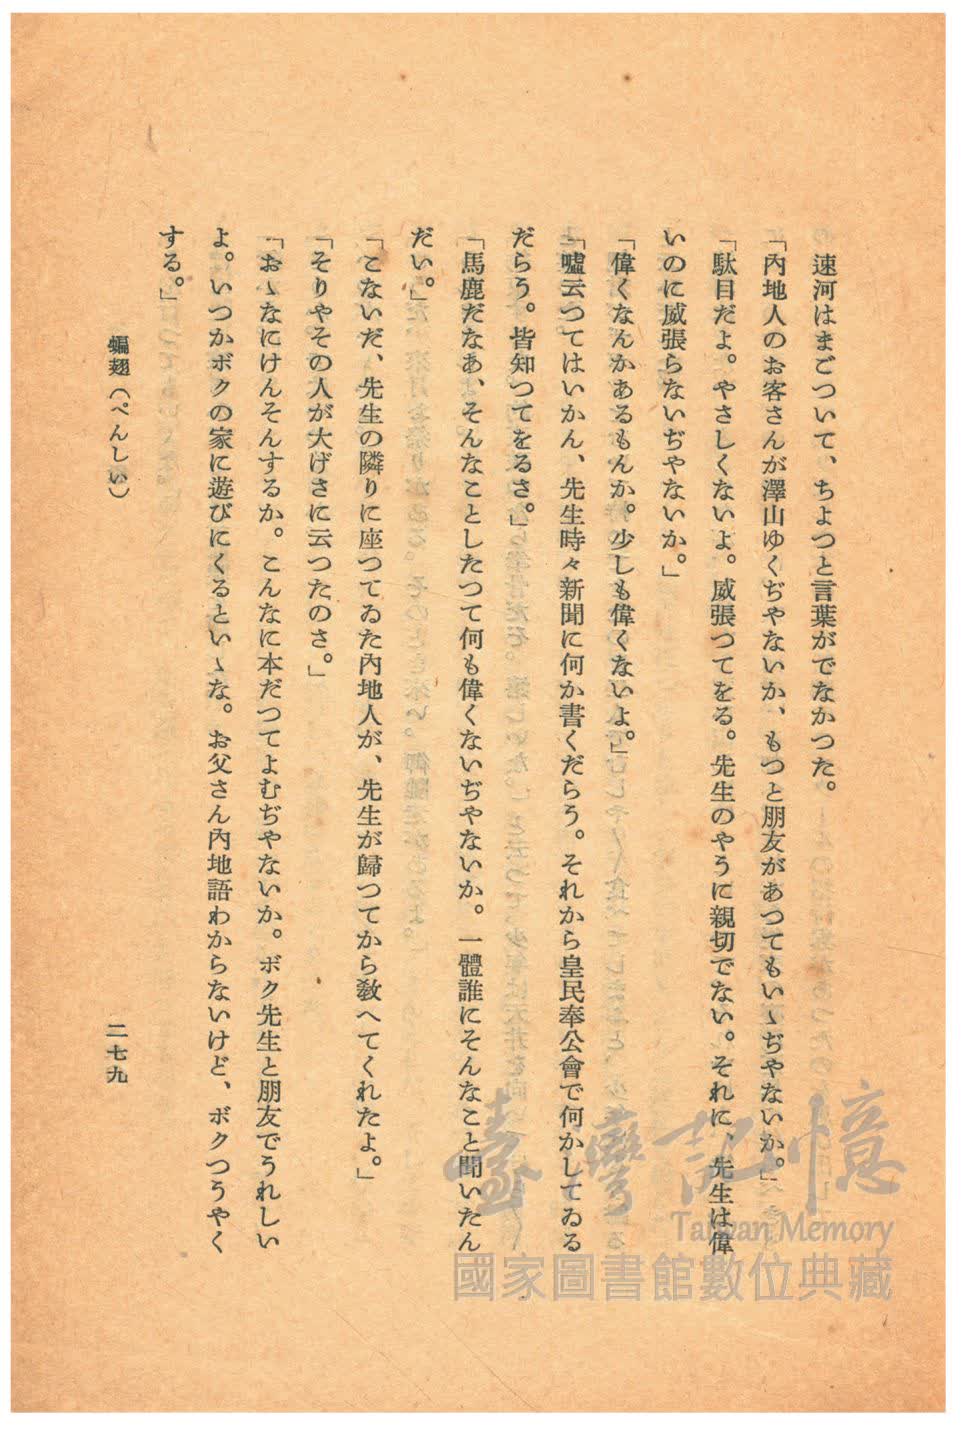 速河はまごついて、ちよつと言葉がでなかつた。
「內地人のお客さんが澤山ゆくぢやないか、もつと朋友があつてもいゝぢやないか。」
「駄目だよ。やさしくないよ。威張つてをる。先生のやうに親切でない。それに、先生は偉
いのに威張らないぢやないか。」
「偉くなんかあるもんか。少しも偉くないよ。」
「噓云つてはいかん、先生時々新聞に何か書くだらう。それから皇民奉公會で何かしてゐる
だらう。皆知つてをるさ。」
「馬鹿だなあ、そんなことしたつて何も偉くないぢやないか。一體誰にそんなこと聞いたん
だい。」
「こないだ、先生の隣りに座つてゐた內地人が、先生が歸つてから敎へてくれたよ。」
「そりやその人が大げさに云つたのさ。」
「おゝなにけんそんするか。こんなに本だつてよむぢやないか。ボク先生と朋友でうれしい
よ。いつかボクの家に遊びにくるといゝな。お父さん內地語わからないけど、ボクつうやく
する。」
蝙翅（ぺんしい）
二七九
臺灣記憶
Taiwan Memory
國家圖書館數位典藏